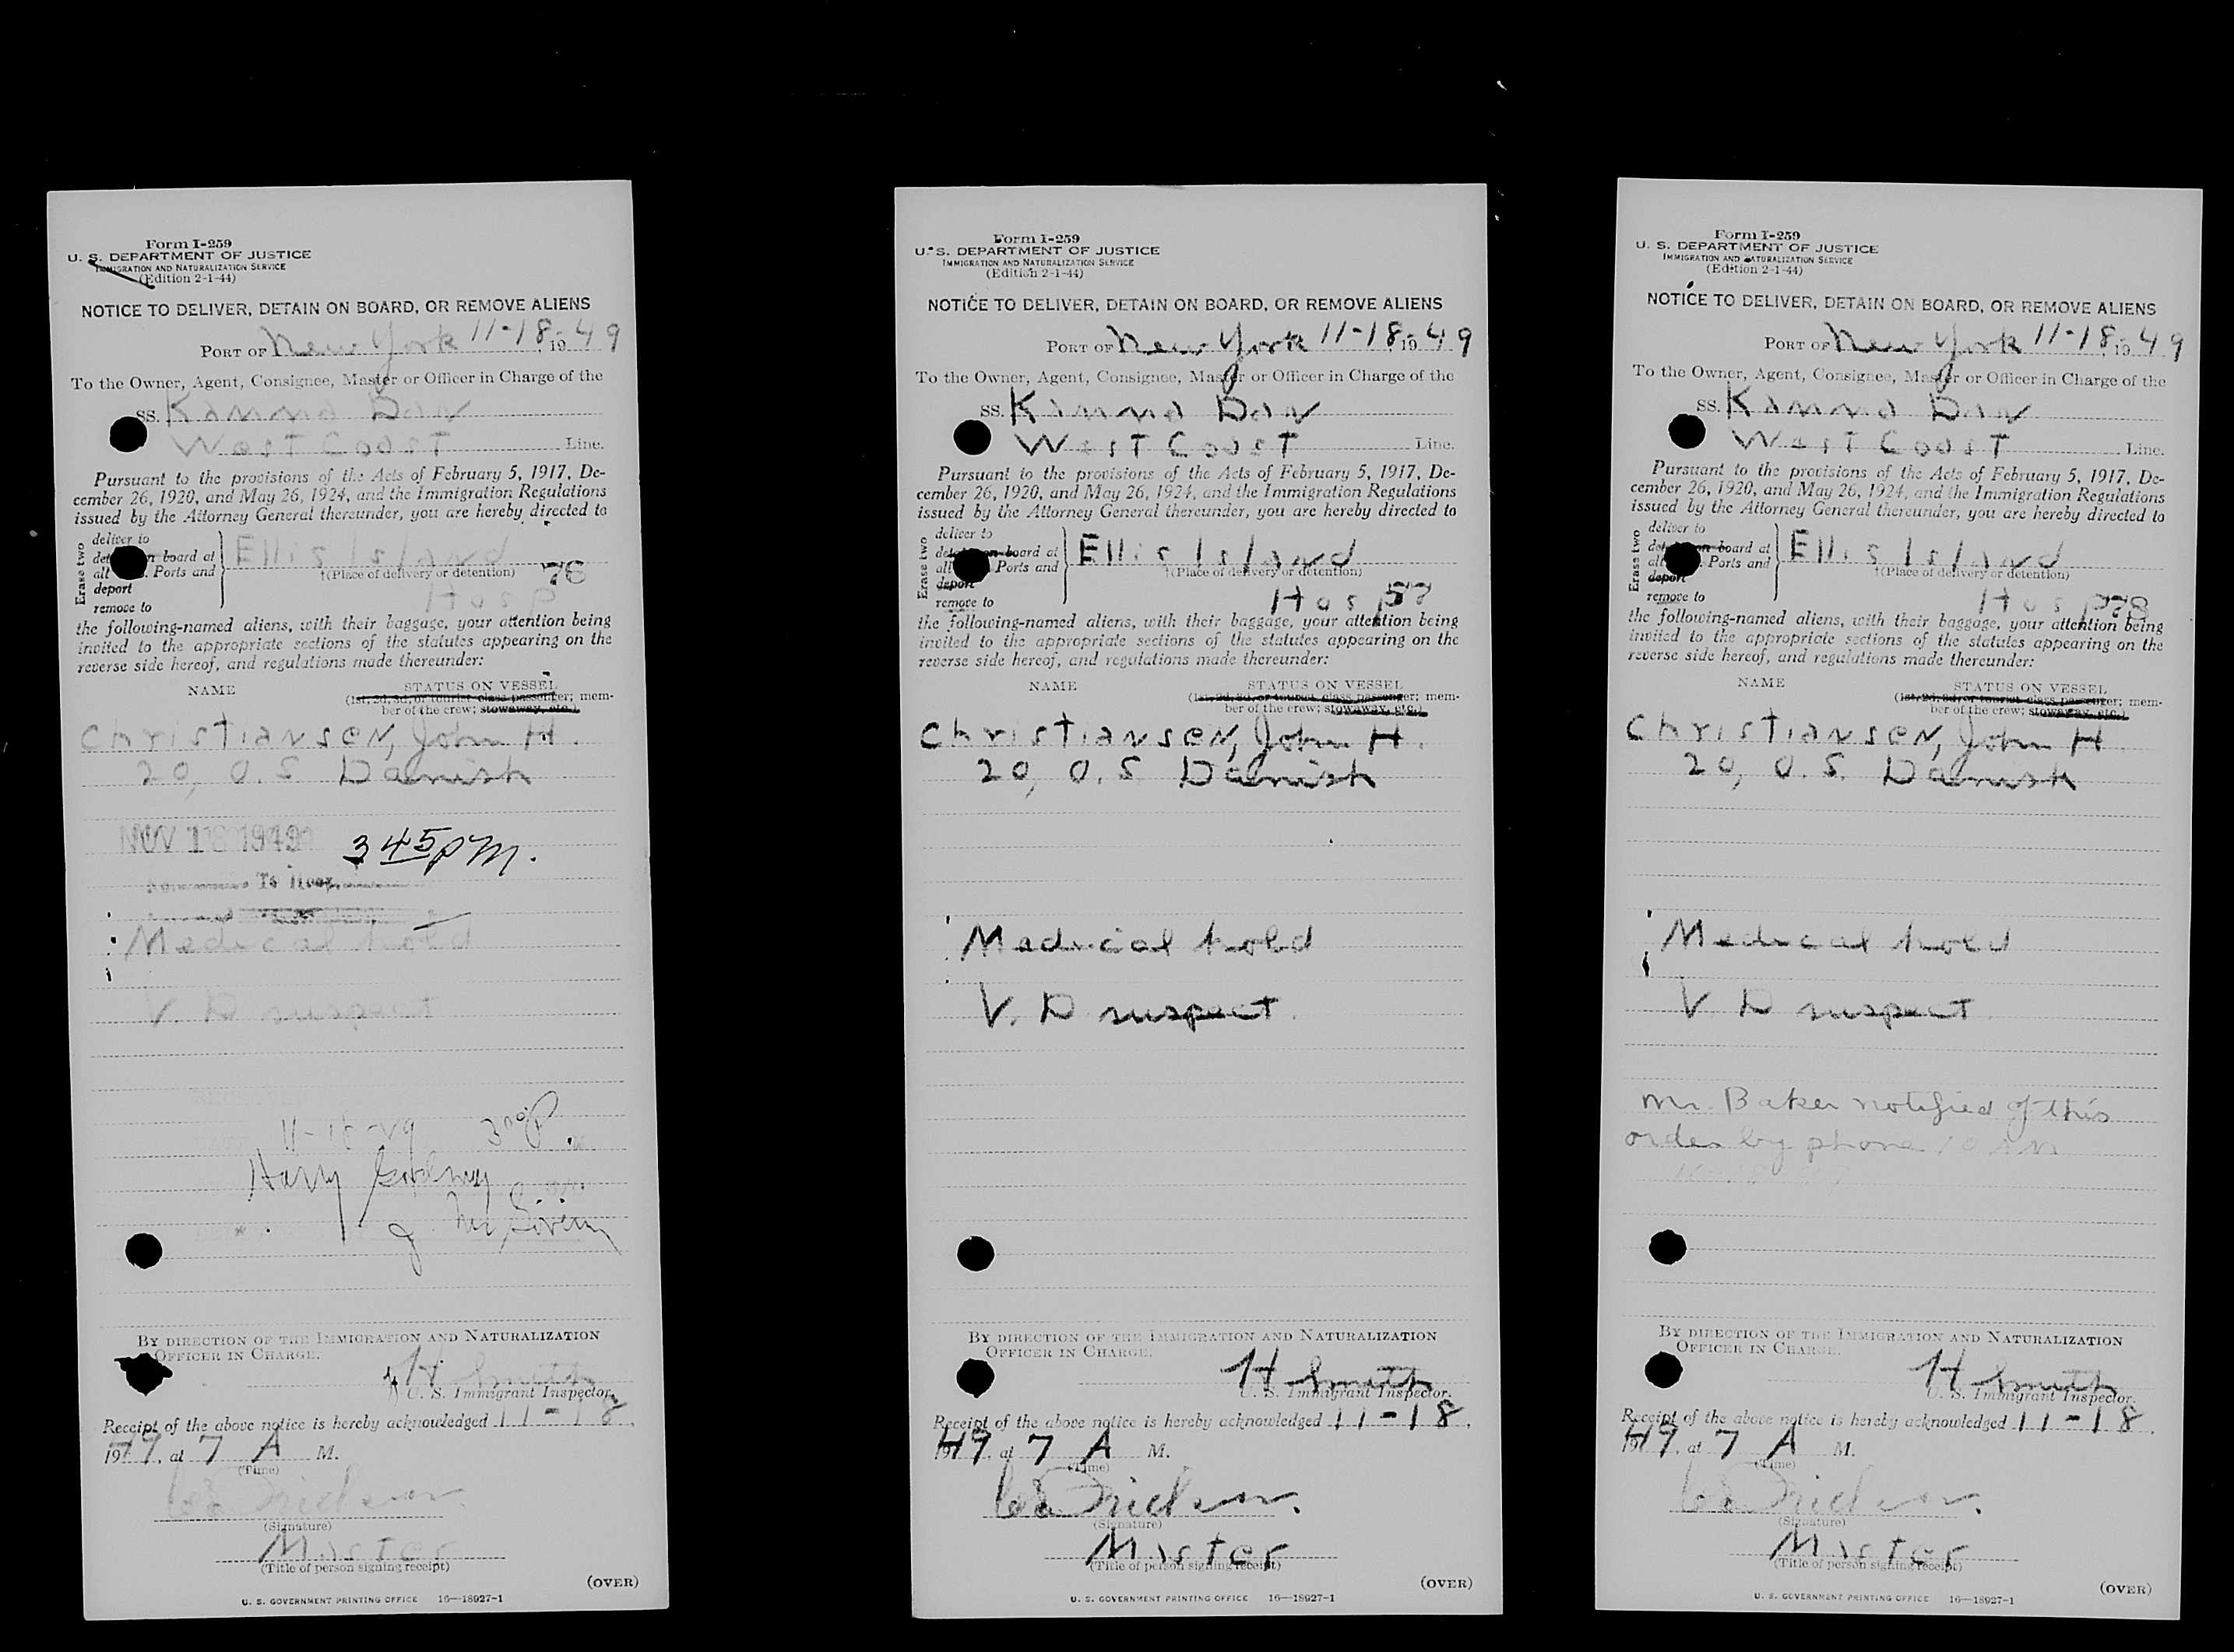 Form I-259
U. S. DEPARTMENT OF JUSTICE
IMMIGRATION AND NATURALIZATION SERVICE
(Edition 2-1-44)
NOTICE TO DELIVER, DETAIN ON BOARD, OR REMOVE ALIENS
PORT OF New York 11-18, 1949
To the Owner, Agent, Consignee, Master or Officer in Charge of the
SS. Kanna Dan
West Coast Line.
Pursuant to the provisions of the Acts of February 5, 1917, De-
cember 26, 1920, and May 26, 1924, and the Immigration Regulations
issued by the Attorney General thereunder, you are hereby directed to
Erase two
deliver to
board at
all Ports and
deport
remove to
Ellis Island
†(Place of delivery or detention)
76
Hosp
the following-named aliens, with their baggage, your attention being
invited to the appropriate sections of the statutes appearing on the
reverse side hereof, and regulations made thereunder:
NAME STATUS ON VESSEL
(1st, 2d, 3d, or tourist class passenger; mem-
ber of the crew; stowaway, etc.)
Christiansen, John H.
20, O.S Danish
NOV 18 1949 3 45 PM.
To Hosp.
Medical hold
V. D suspect
11-18-49 3 00 P
Harry
By direction of the Immigration and Naturalization
Officer in Charge.
H Smith
U. S. Immigrant Inspector.
Receipt of the above notice is hereby acknowledged 11-18,
1949, at 7 A M.
(Time)
(Signature)
Master
(Title of person signing receipt)
(OVER)
U. S. GOVERNMENT PRINTING OFFICE 16—18927-1
Form I-259
U. S. DEPARTMENT OF JUSTICE
IMMIGRATION AND NATURALIZATION SERVICE
(Edition 2-1-44)
NOTICE TO DELIVER, DETAIN ON BOARD, OR REMOVE ALIENS
PORT OF New York 11-18, 1949
To the Owner, Agent, Consignee, Master or Officer in Charge of the
SS. Kanna Dan
West Coast Line.
Pursuant to the provisions of the Acts of February 5, 1917, De-
cember 26, 1920, and May 26, 1924, and the Immigration Regulations
issued by the Attorney General thereunder, you are hereby directed to
Erase two
deliver to
board at
all Ports and
deport
remove to
Ellis Island
†(Place of delivery or detention)
Hosp
the following-named aliens, with their baggage, your attention being
invited to the appropriate sections of the statutes appearing on the
reverse side hereof, and regulations made thereunder:
NAME STATUS ON VESSEL
(1st, 2d, 3d, or tourist class passenger; mem-
ber of the crew; stowaway, etc.)
Christiansen, John H.
20, O.S Danish
Medical hold
V. D suspect
By direction of the Immigration and Naturalization
Officer in Charge.
H Smith
U. S. Immigrant Inspector.
Receipt of the above notice is hereby acknowledged 11-18,
1949, at 7 A M.
(Time)
(Signature)
Master
(Title of person signing receipt)
(OVER)
U. S. GOVERNMENT PRINTING OFFICE 16—18927-1
Form I-259
U. S. DEPARTMENT OF JUSTICE
IMMIGRATION AND NATURALIZATION SERVICE
(Edition 2-1-44)
NOTICE TO DELIVER, DETAIN ON BOARD, OR REMOVE ALIENS
PORT OF New York 11-18, 1949
To the Owner, Agent, Consignee, Master or Officer in Charge of the
SS. Kanna Dan
West Coast Line.
Pursuant to the provisions of the Acts of February 5, 1917, De-
cember 26, 1920, and May 26, 1924, and the Immigration Regulations
issued by the Attorney General thereunder, you are hereby directed to
Erase two
deliver to
board at
all Ports and
deport
remove to
Ellis Island
†(Place of delivery or detention)
Hosp 78
the following-named aliens, with their baggage, your attention being
invited to the appropriate sections of the statutes appearing on the
reverse side hereof, and regulations made thereunder:
NAME STATUS ON VESSEL
(1st, 2d, 3d, or tourist class passenger; mem-
ber of the crew; stowaway, etc.)
Christiansen, John H
20, O.S. Danish
Medical hold
V D suspect
Mr. Baker notified of this
order by phone 10 AM
11-18-49
By direction of the Immigration and Naturalization
Officer in Charge.
H Smith
U. S. Immigrant Inspector.
Receipt of the above notice is hereby acknowledged 11-18,
1949, at 7 A M.
(Time)
(Signature)
Master
(Title of person signing receipt)
(OVER)
U. S. GOVERNMENT PRINTING OFFICE 16—18927-1